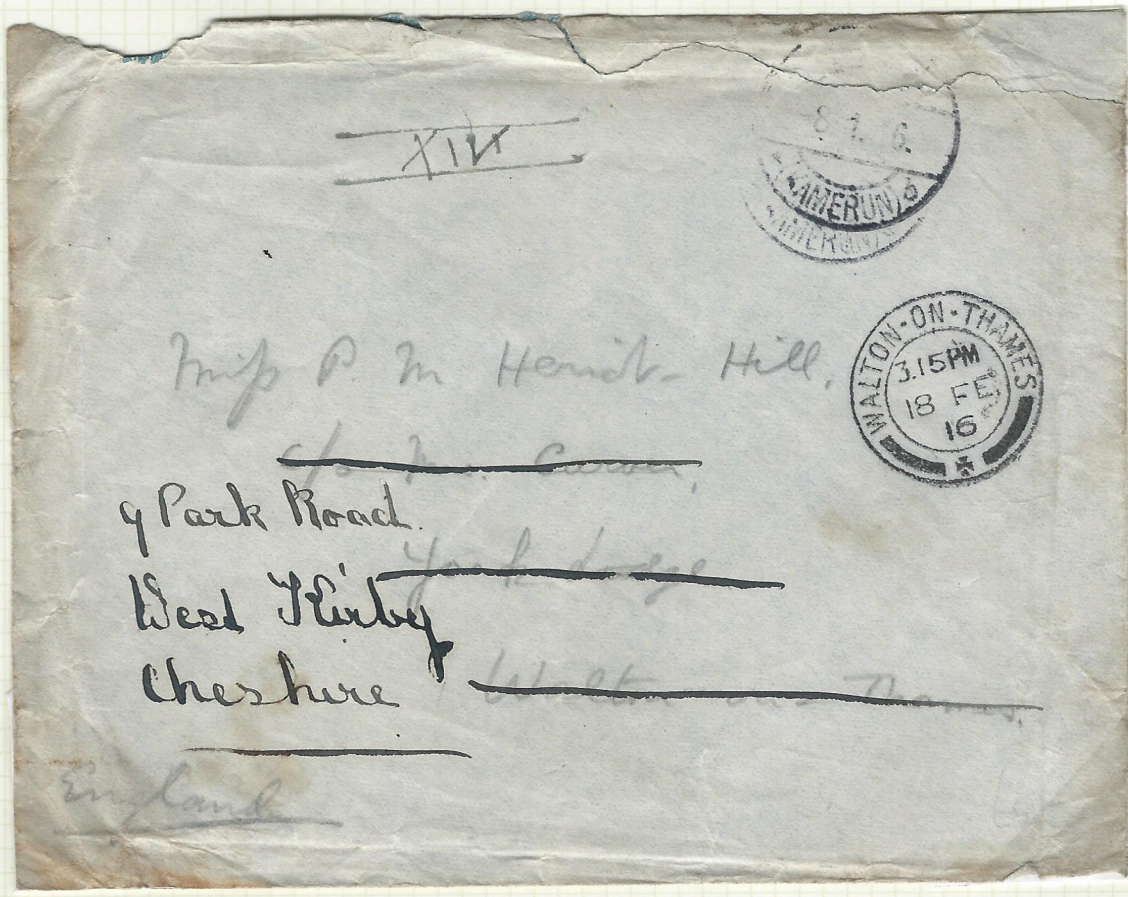 XIV
8.1.16.
(KAMERUN) a
AMERUN)
WALTON-ON-THAMES
3.15PM
18 FE
16
Miss P. M Heriot Hill,
c/o M
9 Park Road.
York Lodge
West Kirby
Cheshire
Walton on Thames.
England